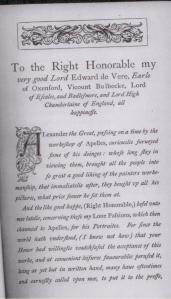 To the Right Honorable my
very good Lord Edward de Vere, Earle
of Oxenford, Vicount Bulbecke, Lord
of Escales, and Badlesmere, and Lord High
Chamberlaine of England, all
happinesse.
ALexander the Great, passing on a time by the
workeshop of Apelles, curiouslie surueyed
some of his doings: whose long stay in
viewing them, brought all the people into
so great a good liking of the painters worke-
manship, that immediatelie after, they bought vp all his
pictures, what price soeuer he set them at.
And the like good happe, (Right Honorable,) befel vnto
mee latelie, concerning these my Loue Passions, which then
chaunced to Apelles, for his Portraites. For since the
world hath vnderstood, (I know not how) that your
Honor had willinglie vouchsafed the acceptance of this
worke, and at conuenient leisures fauourablie perused it,
being as yet but in written hand, many haue oftentimes
and earnestly called vpon mee, to put it to the presse,